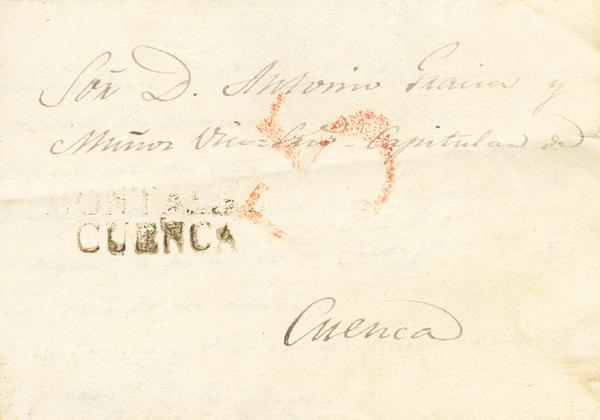 Sor D. Antonio Gracia y
Muñoz Vice-Srio-Capitular de
MONTALB
CUENCA
Cuenca